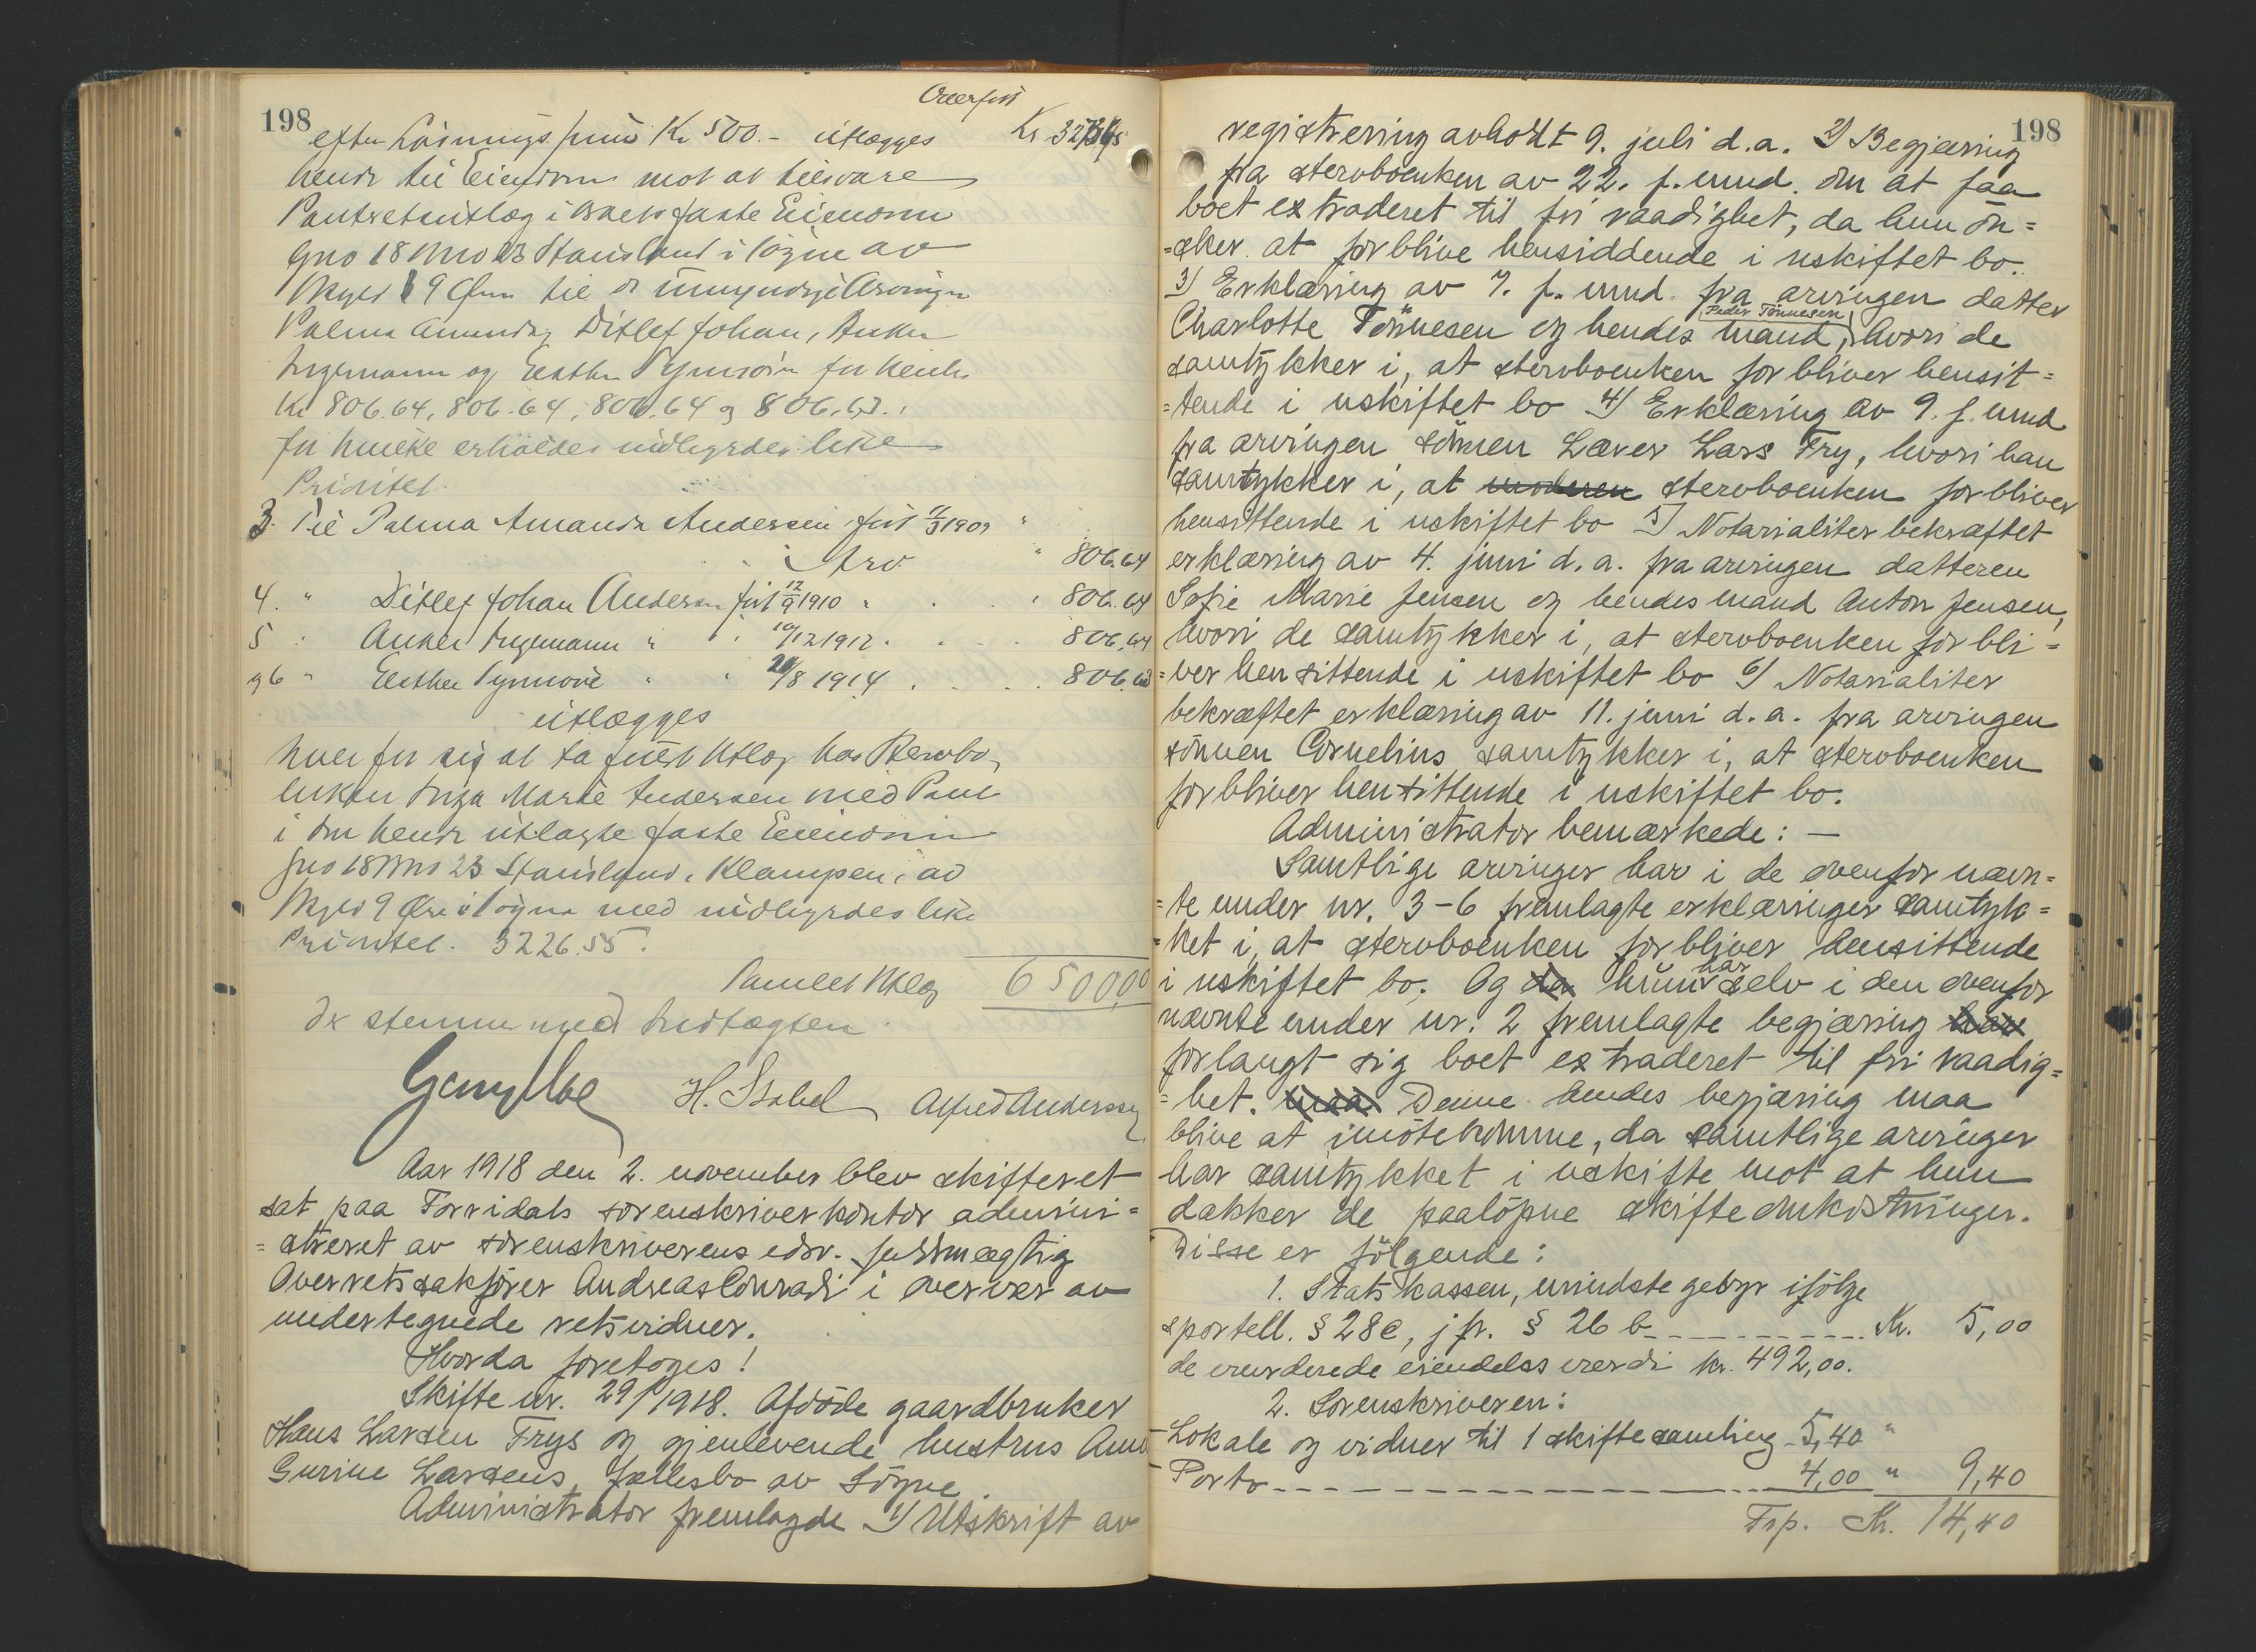 198
Overført
efter Løsningssum Kr 500.- utlægges Kr
hende til Eiendom mot at tilsvare
Pantretsutlæg i faste Eiendom
Gno 18 Bno 23 Stausland i Søgne av
Skyld 9 Øre til de umyndige Arvinger
Palma Amanda, Ditlef Johan, Anker
Ingemann og Esther Synnøve for
Kr 806.64, 806.64, 806.64 og 806.63.
for hvilke erholdes indbyrdes like
Prioritet.
3. Til Palma Amanda Andersen født 1909 "
Arv " 806.64
4. " Ditlef Johan Andersen født 12/9 1910 " . . " 806.64
5 " Anker Ingemann " " 10/12 1912 . . . 806.64
og 6 " Esther Synnøve " " /8 1914 . . . 806.63
utlægges
hver for sig at ta fuldt Utlæg hos Stervbo-
enken Inga Marie Andersen med Pant
i den hende utlagte faste Eiendom
Gno 18 Bno 23 Stausland, Klampen, av
Skyld 9 Øre i Søgne med indbyrdes like
Prioritet. 3226.55.
Samlet Utlæg 6500,00
der stemmer med Indtægten.
H. Stabel Alfred Andersen
Aar 1918 den 2. november blev skifteret
sat paa Torridals sorenskriverkontor admini=
=streret av sorenskriverens edsv. fuldmægtig
overretssakfører Andreas Conradi i overvær av
undertegnede retsvidner.
Hvorda foretoges!
Skifte nr. 29/1918. Afdöde gaardbruker
Hans Larsen Trys og gjenlevende hustrus Anne
Gurine Larsens fællesbo av Sögne.
Administrator fremlagde 1) Utskrift av
198
registrering avholdt 9. juli d.a. 2) Begjæring
fra stervboenken av 22. f. mnd. om at faa
boet extraderet til fri raadighet, da hun ön=
=sker at forblive hensiddende i uskiftet bo.
3) Erklæring av 7. f. mnd. fra arvingen datter
Peder Tönnesen
Charlotte Tönnesen og hendes mand, hvori de
samtykker i, at stervboenken forbliver hensit=
=tende i uskiftet bo 4) Erklæring av 9. f. mnd
fra arvingen sönnen Laver Lars Try, hvori han
samtykker i, at moderen stervboenken forbliver
hensittende i uskiftet bo 5) Notarialiter bekræftet
erklæring av 4. juni d.a. fra arvingen datteren
Sofie Marie Jensen og hendes mand Anton Jensen,
hvori de samtykker i, at stervboenken forbli=
=ver hensittende i uskiftet bo 6) Notarialiter
bekræftet erklæring av 11. juni d.a. fra arvingen
sönnen Cornelius samtykker i, at stervboenken
forbliver hensittende i uskiftet bo.
Administrator bemærkede: —
Samtlige arvinger har i de ovenfor nævn=
=te under nr. 3-6 fremlagte erklæringer samtyk=
=ket i, at stervboenken forbliver hensittende
i uskiftet bo. Og da hun har selv i den ovenfor
nævnte under nr. 2 fremlagte begjæring har
forlangt sig boet extraderet til fri raadig=
=het. maa Denne hendes begjæring maa
blive at imötekomme, da samtlige arvinger
har samtykket i uskifte mot at hun
dækker de paalöpne skifteomkostninger.
Disse er fölgende:
1. Statskassen, mindste gebyr ifölge
sportell. § 28c, jfr. § 26 b Kr. 5,00
de vurderede eiendeles værdi kr. 492,00.
2. Sorenskriveren:
Lokale og vidner til 1 skiftesamling 5,40 "
Porto 4,00 " 9,40
Trp. Kr. 14,40